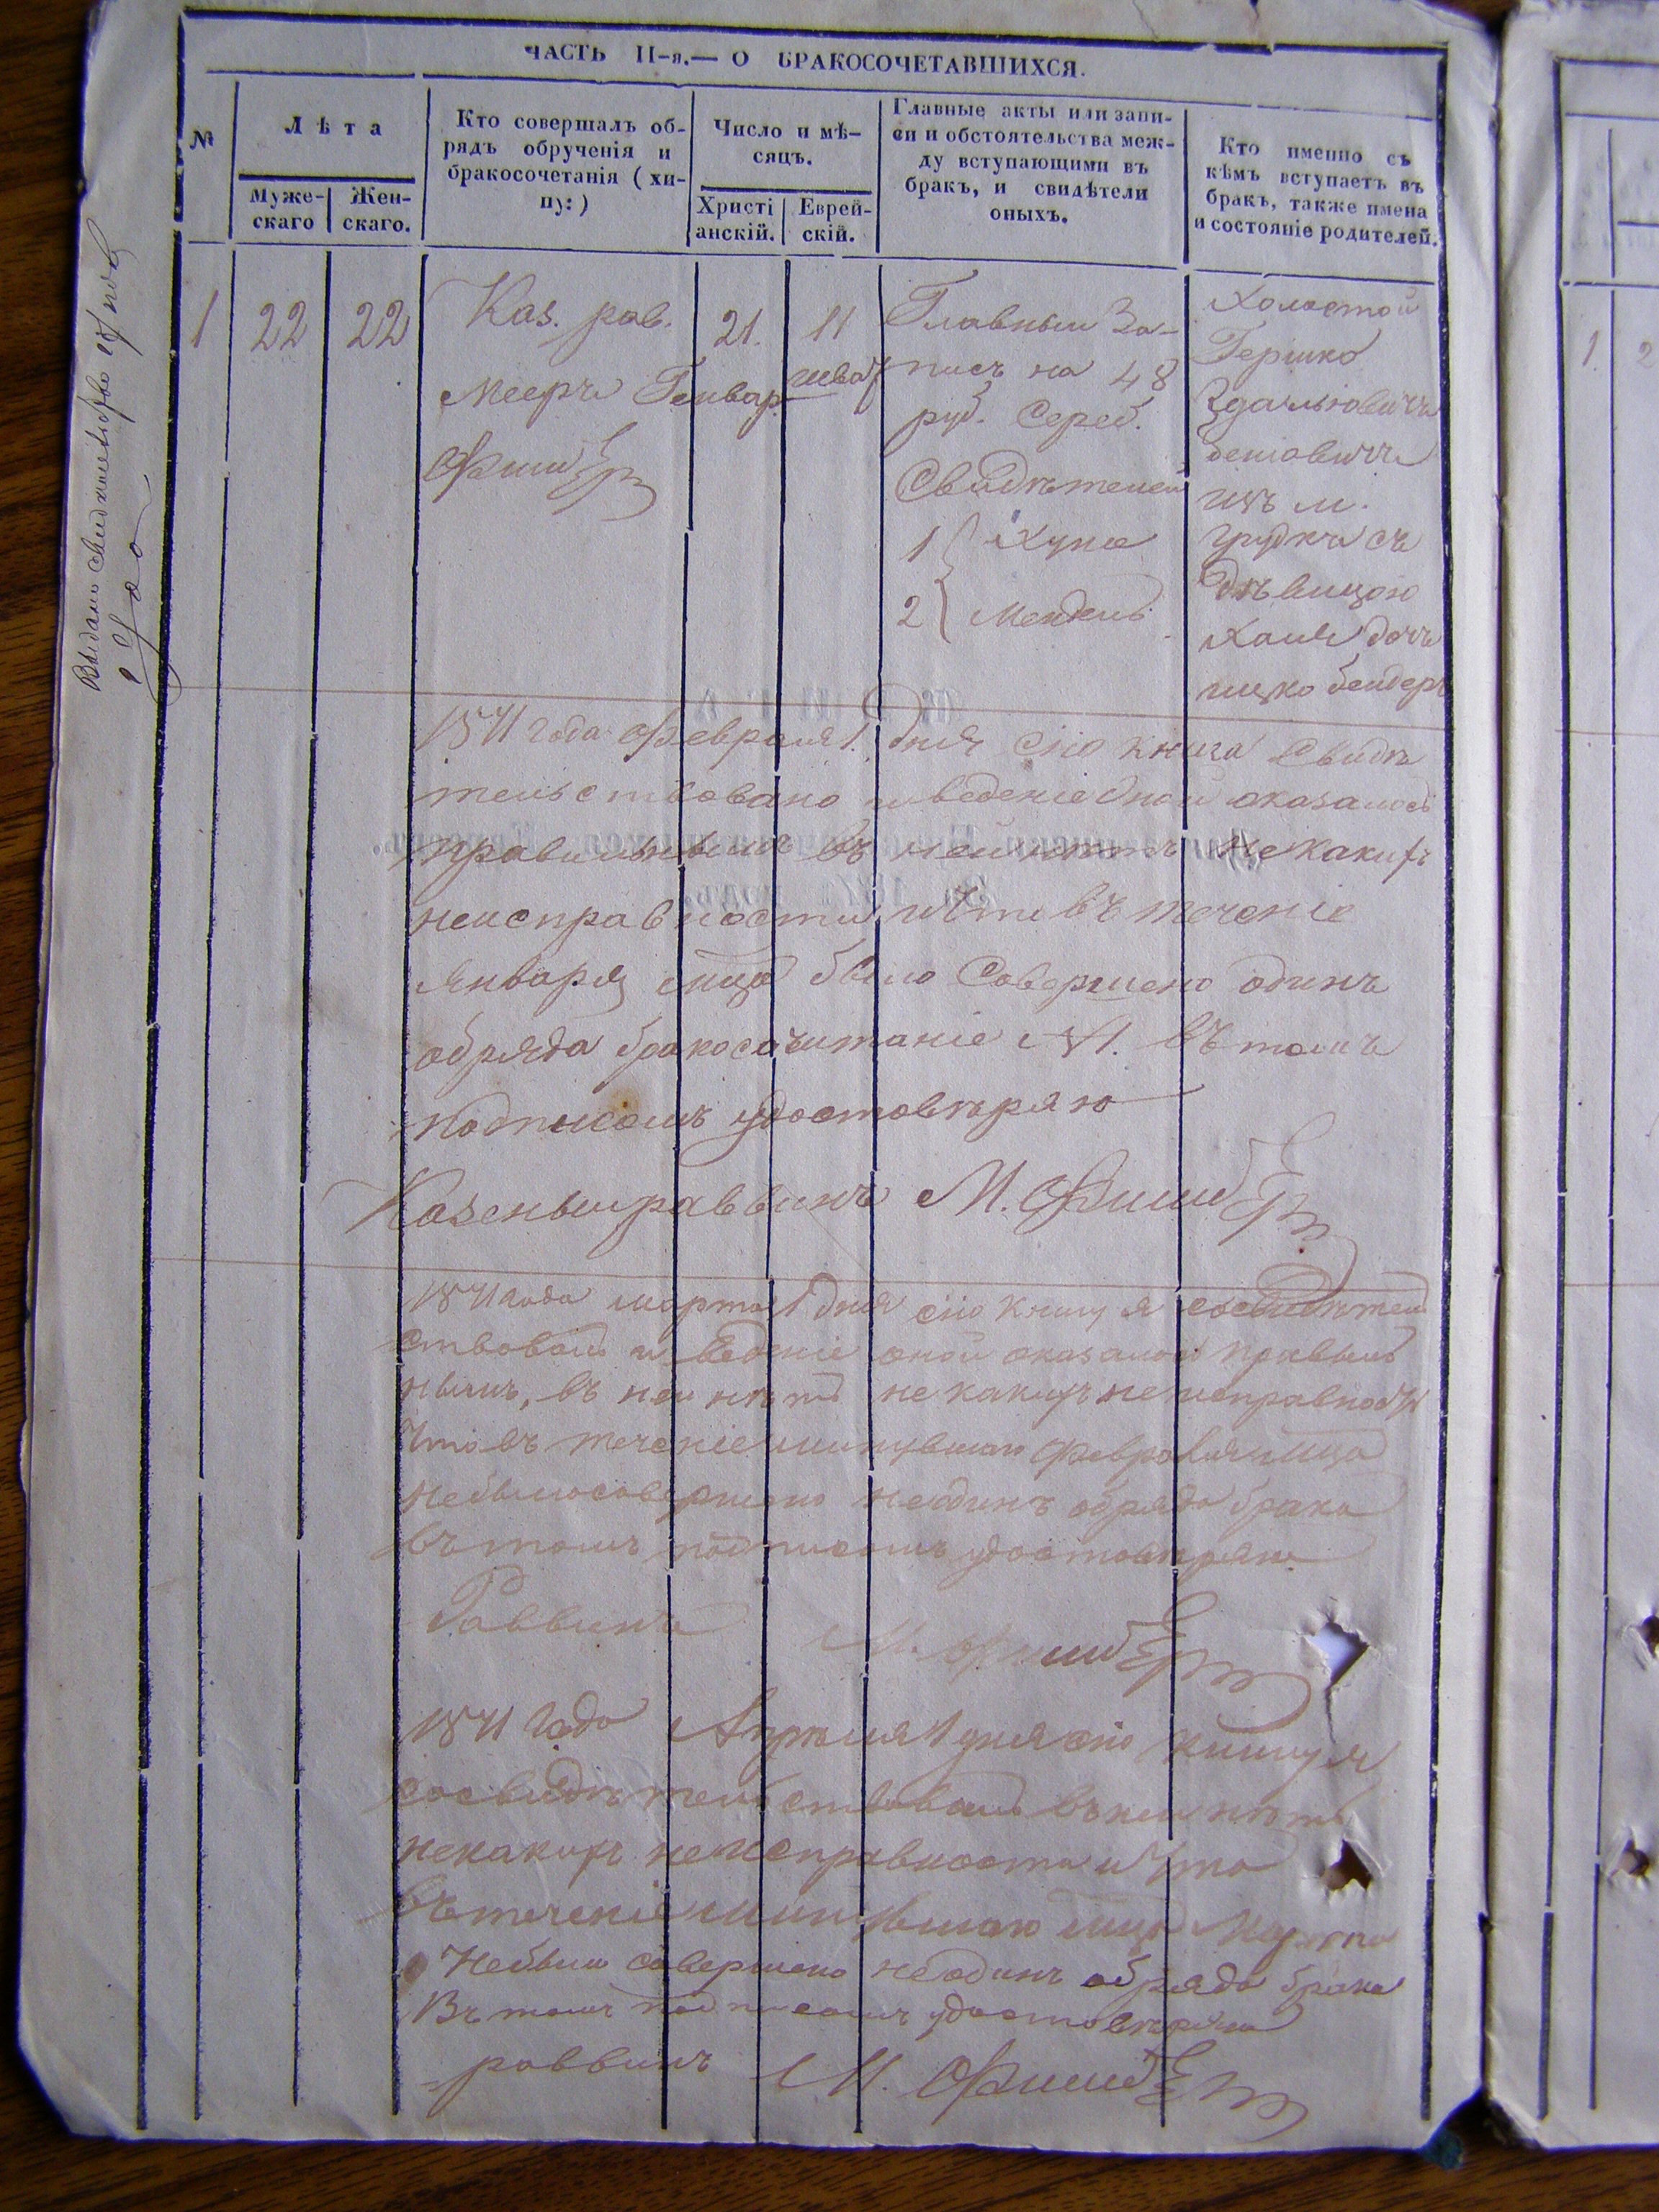 ЧАСТЬ II-я.— О БРАКОСОЧЕТАВШИХСЯ.
№
Лѣта
Муже-
скаго
Жен-
скаго.
Кто совершалъ об-
рядъ обрученія и
бракосочетанія (хи-
пу:)
Число и мѣ-
сяцъ.
Христі
анскій.
Еврей-
скій.
Главные акты или запи-
си и обстоятельства меж-
ду вступающими въ
бракъ, и свидѣтели
оныхъ.
Кто именно съ
кѣмъ вступаетъ въ
бракъ, также имена
и состояніе родителей.
1
22
22
Каз. рав.
Мееръ
21.
Генвар.
11
Главным За-
писъ на 48
руб. Сереб.
Свидѣтелей
1 Хуне
2 Мендель
Холостой
Гершко
изъ м.
съ
дѣвицою
дочъ
ицко бендеръ
1871 года Февраля 1. дня сію книга Свидѣ
тельствовано и веденіе оной оказалось
правильнымъ въ ней нѣтъ некакихъ
неисправности и что въ теченіе
Января мца было Совершено одинъ
обрядъ бракосочитаніе №1. въ томъ
подписомъ удостовѣряю
Казеный раввинъ М.
1871 года марта 1 дня сію книгу я сосвидѣтель
ствовалъ и веденіе оной оказалось правиль
нымъ, въ ней нѣтъ некакихъ неисправности
Что въ теченіе минувшаго Февраля мца
небыло совершено неодинъ обрядъ брака
въ томъ подписомъ удостовѣряю
Раввинъ М.
1871 года Апрѣля 1 дня сію книгу я
сосвидѣтельствовалъ въ ней нѣтъ
некакихъ неисправности и что
въ теченіе минувшаго мца Марта
Небыло совершено неодинъ обрядъ брака
Въ томъ подписомъ удостовѣряю
раввинъ М.